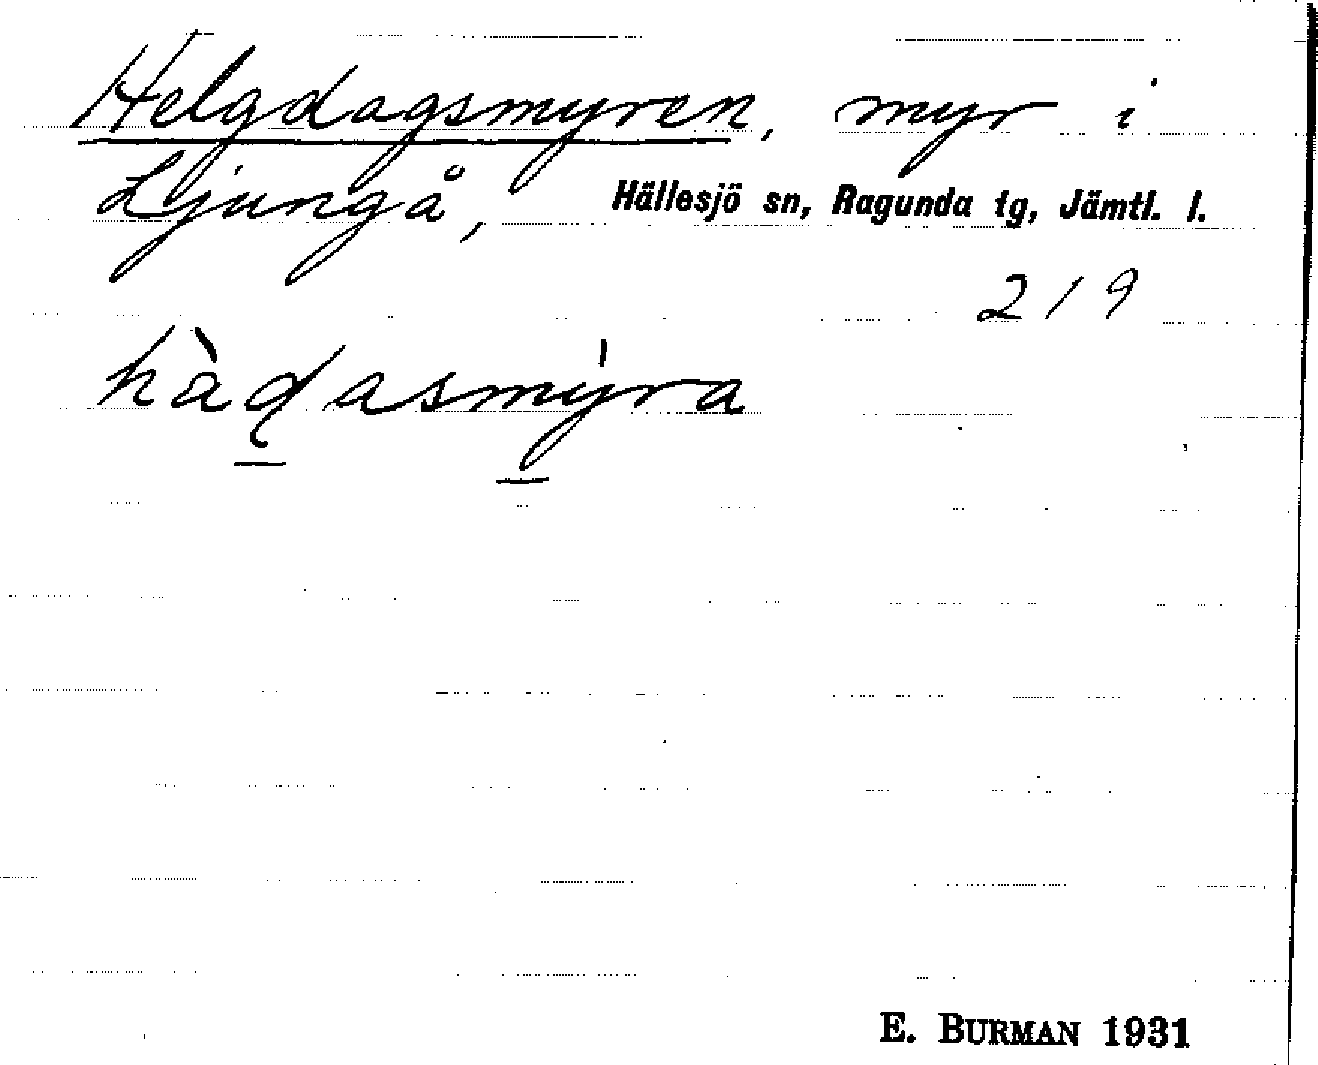 Helgdagsmyren, myr i
Ljungå, Hällesjö sn, Ragunda tg, Jämtl. l.
219
hàdasmýra
E. BURMAN 1931